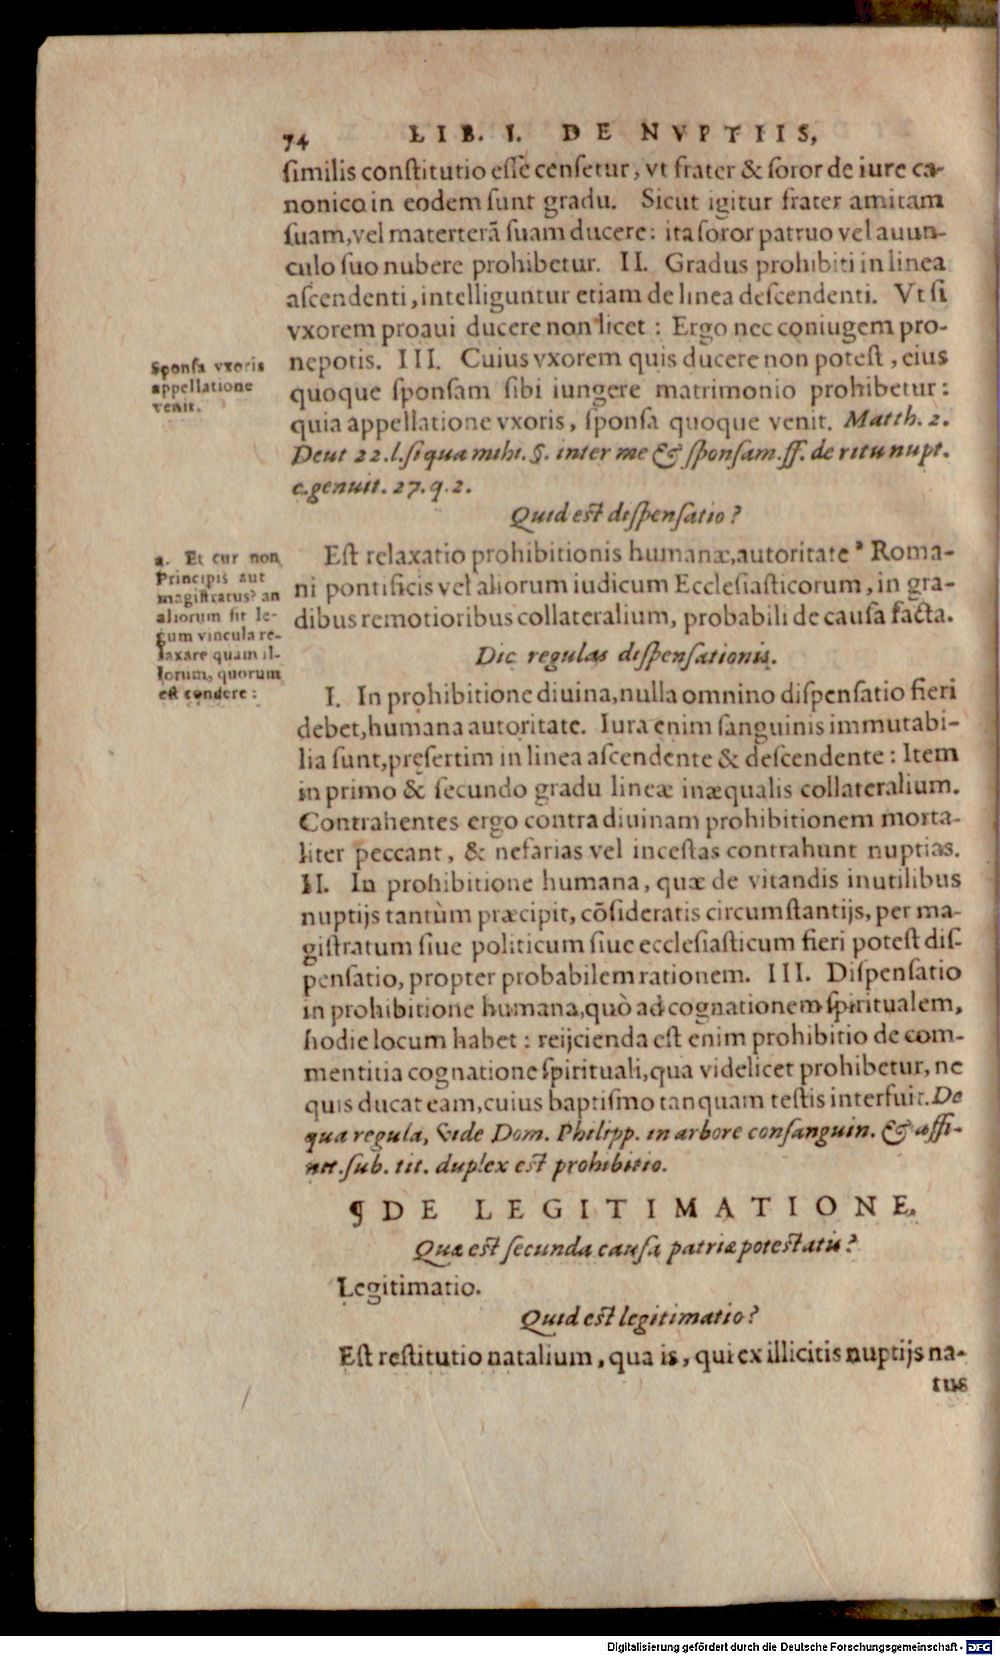 74 LIB. I. DE NVPTIIS,
similis constitutio esse censetur, vt frater & soror de iure ca-
nonico in eodem sunt gradu. Sicut igitur frater amitam
suam, vel materterã suam ducere: ita soror patruo vel auun-
culo suo nubere prohibetur. II. Gradus prohibiti in linea
ascendenti, intelliguntur etiam de linea descendenti. Vt si
vxorem proaui ducere non licet: Ergo nec coniugem pro-
nepotis. III. Cuius vxorem quis ducere non potest, eius
quoque sponsam sibi iungere matrimonio prohibetur:
quia appellatione vxoris, sponsa quoque venit. Matth. 2.
Deut 22. l. si qua mihi. §. inter me & sponsam. ff. de ritu nupt.
c. genuit. 27. q. 2.
Sponsa vxoris
appellatione
venit.
Quid est dispensatio?
Est relaxatio prohibitionis humanæ, autoritate a Roma-
ni pontificis vel aliorum iudicum Ecclesiasticorum, in gra-
dibus remotioribus collateralium, probabili de causa facta.
a. Et cur non
Principis aut
magistratus? an
aliorum sit le-
gum vincula re-
laxare quam il-
lorum, quorum
est condere:
Dic regulas dispensationis.
I. In prohibitione diuina, nulla omnino dispensatio fieri
debet, humana autoritate. Iura enim sanguinis immutabi-
lia sunt, pręsertim in linea ascendente & descendente: Item
in primo & secundo gradu lineæ inæqualis collateralium.
Contrahentes ergo contra diuinam prohibitionem morta-
liter peccant, & nefarias vel incestas contrahunt nuptias.
II. In prohibitione humana, quæ de vitandis inutilibus
nuptijs tantùm præcipit, cõsideratis circumstantijs, per ma-
gistratum siue politicum siue ecclesiasticum fieri potest dis-
pensatio, propter probabilem rationem. III. Dispensatio
in prohibitione humana, quò ad cognationem spiritualem,
hodie locum habet: reijcienda est enim prohibitio de com-
mentitia cognatione spirituali, qua videlicet prohibetur, ne
quis ducat eam, cuius baptismo tanquam testis interfuit. De
qua regula, vide Dom. Philipp. in arbore consanguin. & affi-
nit. sub. tit. duplex est prohibitio.
¶ DE LEGITIMATIONE.
Quæ est secunda causa patriæ potestatis?
Legitimatio.
Quid est legitimatio?
Est restitutio natalium, qua is, qui ex illicitis nuptijs na-
tus
Digitalisierung gefördert durch die Deutsche Forschungsgemeinschaft - DFG